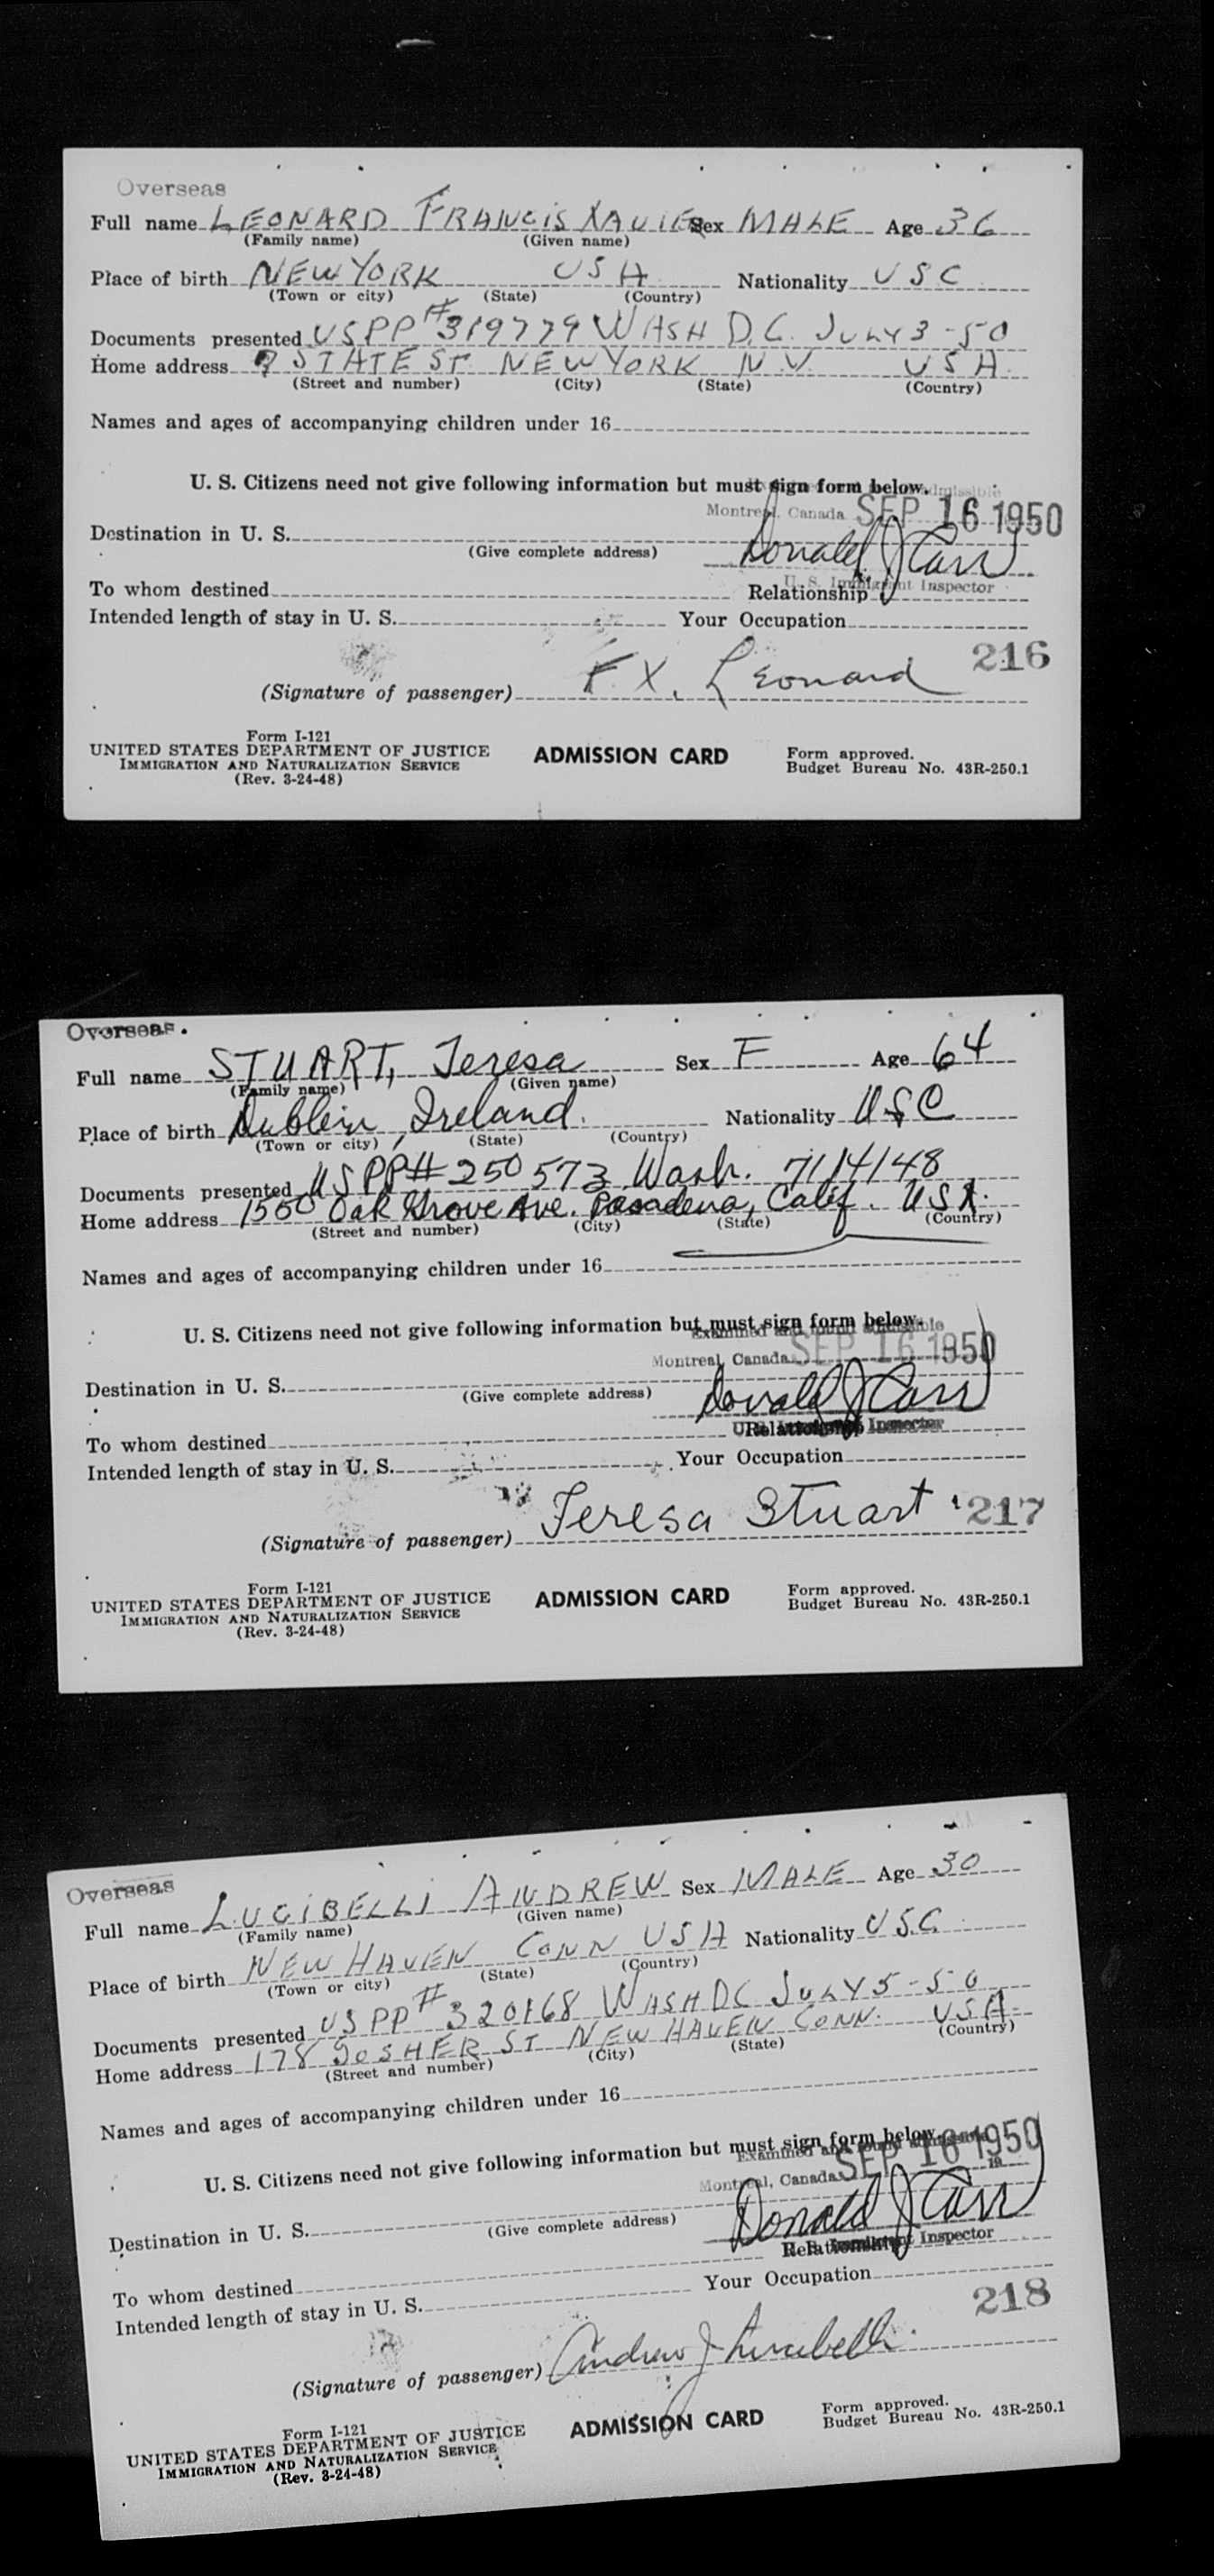 Overseas
Full name LEONARD FRANCIS XAVIER Sex MALE Age 36
(Family name) (Given name)
Place of birth NEW YORK USA Nationality USC
(Town or city) (State) (Country)
Documents presented USPP # 319779 WASH D.C. JULY 3-50
Home address 7 STATE ST NEW YORK N.Y. USA
(Street and number) (City) (State) (Country)
Names and ages of accompanying children under 16
U. S. Citizens need not give following information but must sign form below.
Montreal, Canada SEP 16 1950
Destination in U. S. Donald J Carr
(Give complete address)
U. S. Immigrant Inspector
To whom destined Relationship
Intended length of stay in U. S. Your Occupation
216
(Signature of passenger) F. X. Leonard
Form I-121
UNITED STATES DEPARTMENT OF JUSTICE ADMISSION CARD Form approved.
IMMIGRATION AND NATURALIZATION SERVICE Budget Bureau No. 43R-250.1
(Rev. 3-24-48)
Overseas.
Full name STUART, Teresa Sex F Age 64
(Family name) (Given name)
Place of birth Dublin, Ireland. Nationality USC
(Town or city) (State) (Country)
Documents presented USPP# 250573 Wash. 7/14/48
Home address 1550 Oak Grove Ave. Pasadena, Calif. USA.
(Street and number) (City) (State) (Country)
Names and ages of accompanying children under 16
U. S. Citizens need not give following information but must sign form below.
Examined and found admissible
Montreal, Canada SEP 16 1950
Destination in U. S. Donald J Carr
(Give complete address)
To whom destined Relationship Inspector
Intended length of stay in U. S. Your Occupation
(Signature of passenger) Teresa Stuart 217
Form I-121
UNITED STATES DEPARTMENT OF JUSTICE ADMISSION CARD Form approved.
IMMIGRATION AND NATURALIZATION SERVICE Budget Bureau No. 43R-250.1
(Rev. 3-24-48)
Overseas
Full name LUCIBELLI ANDREW Sex MALE Age 30
(Family name) (Given name)
Place of birth NEW HAVEN CONN USA Nationality USC
(Town or city) (State) (Country)
Documents presented USPP # 320168 WASH DC JULY 5-50
Home address 178 GOSHER ST NEW HAVEN CONN. USA
(Street and number) (City) (State) (Country)
Names and ages of accompanying children under 16
U. S. Citizens need not give following information but must sign form below.
Examined and found admissible
Montreal, Canada SEP 16 1950
19
Destination in U. S. Donald J Carr
(Give complete address)
To whom destined Relationship Inspector
Intended length of stay in U. S. Your Occupation
218
(Signature of passenger) Andrew J Lucibelli
Form I-121
UNITED STATES DEPARTMENT OF JUSTICE ADMISSION CARD Form approved.
IMMIGRATION AND NATURALIZATION SERVICE Budget Bureau No. 43R-250.1
(Rev. 3-24-48)